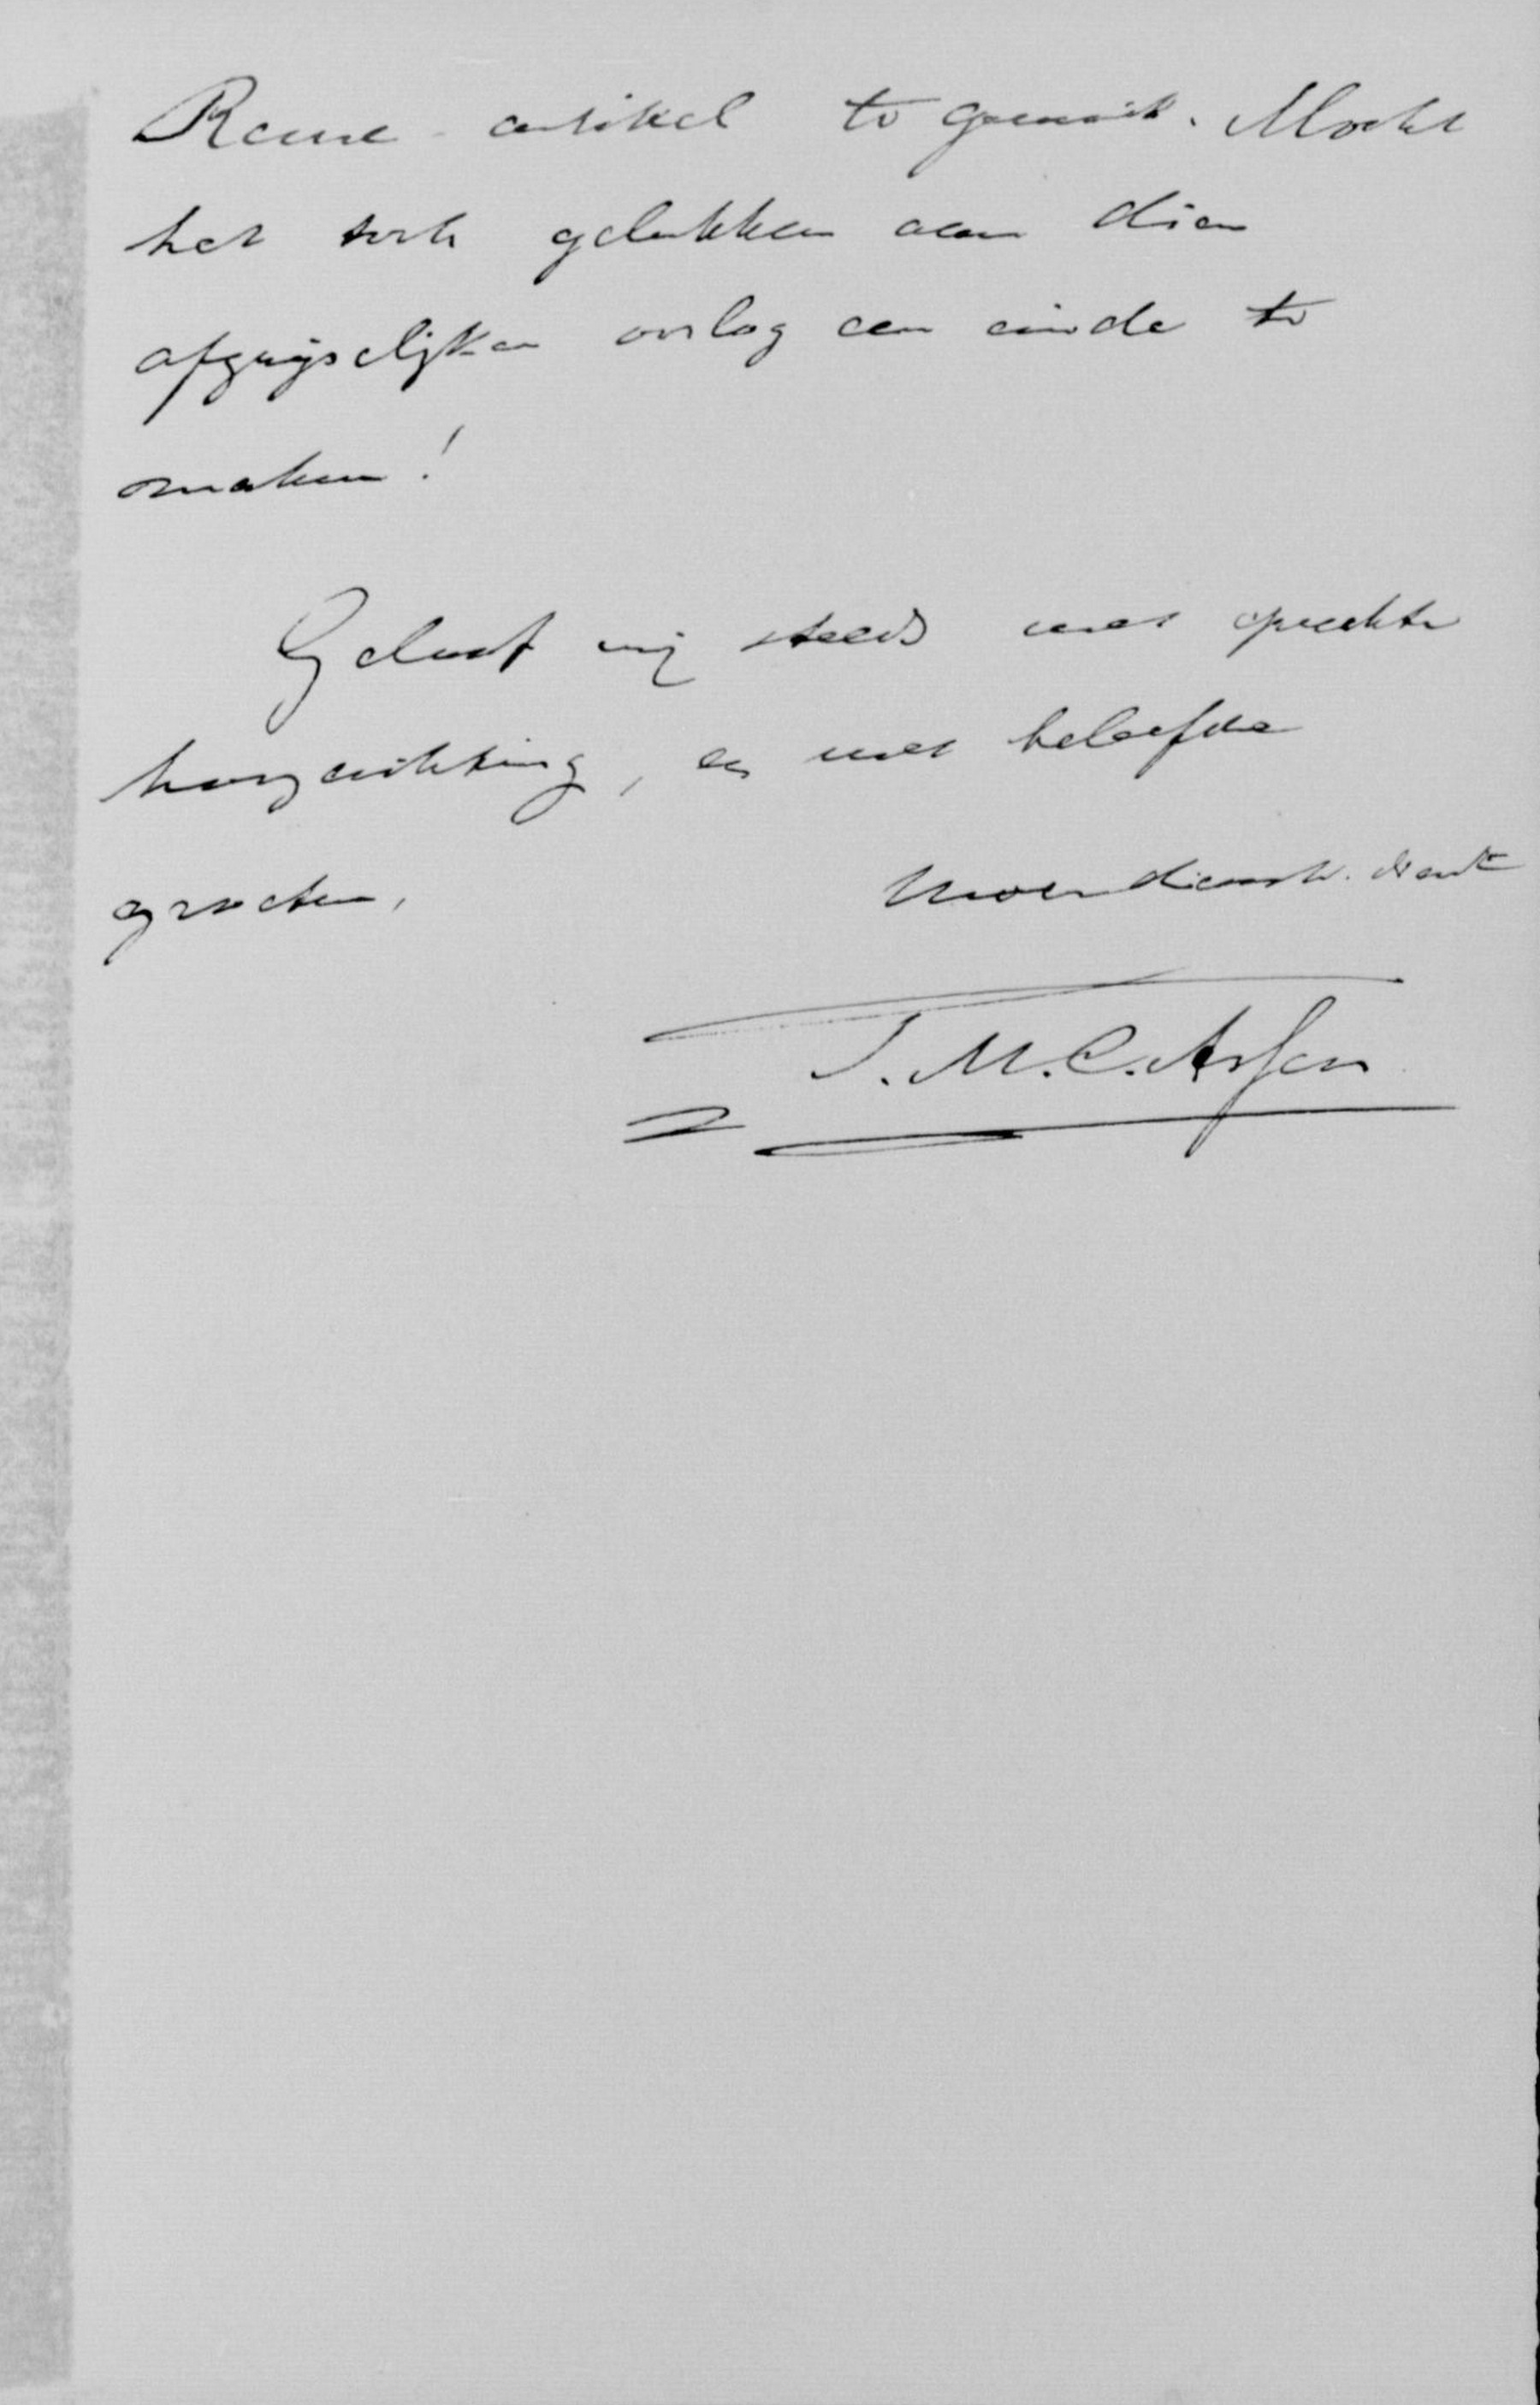 Revue-artikel te gemoet. Mocht
het toch gelukken aan dien
afgrijselijken oorlog een einde te
maken!
Geloof mij steeds met oprechte
hoogachting, en met beleefde
groeten,
Uwen dienstw. dienaar
T. M. C. Asser